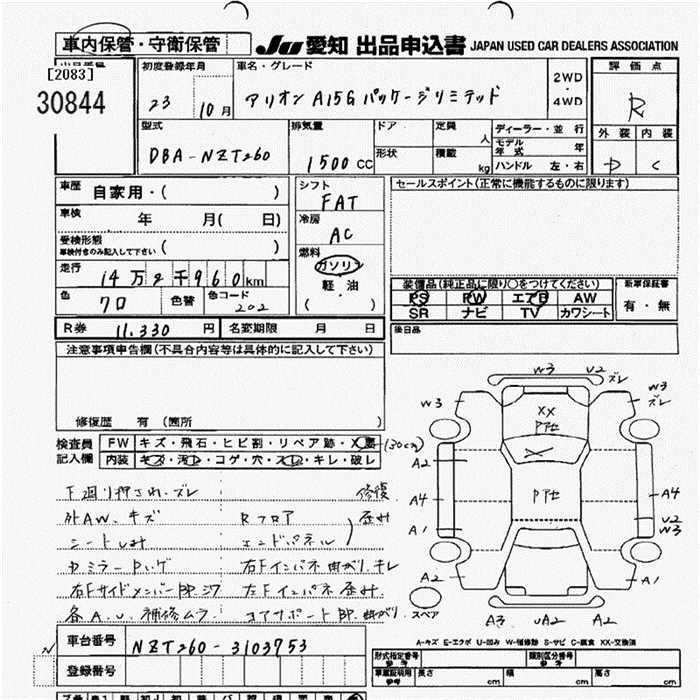 車内保管・守衛保管
JU 愛知 出品申込書 JAPAN USED CAR DEALERS ASSOCIATION
出品番号 初度登録年月 車名・グレード 2WD・4WD 評価点
[2083]
30844 23 10月 アリオン A15G パッケージリミテッド R
外装 内装
型式 排気量 ドア 定員 人 ディーラー・並行
DBA-NZT260 1500CC 形状 積載 kg モデル年式 年
ハンドル 左・右
D C
車歴 自家用・( ) シフト FAT セールスポイント(正常に機能するものに限ります)
車検 年 月( 日) 冷房 AC
受検形態 ( )
車検付きのみ記入して下さい
燃料 ガソリン 軽油 ・ ( )
走行 14万2千960km
色 クロ 色替 色コード 202
装備品(純正品に限り○をつけてください) 新車保証書
PS PW エアB AW 有・無
SR ナビ TV カワシート
R券 11,330円 名変期限 月 日 後日品
注意事項申告欄(不具合内容等は具体的に記入して下さい)
修復歴 有 (箇所 )
検査員記入欄 FW キズ・飛石・ヒビ割・リペア跡・X要 (30cm)
内装 キズ・汚れ・コゲ・穴・スレ・キレ・破レ
下廻り押され、ズレ 修復
外AW、キズ Rフロア 歪み
エンドパネル
右Fインパネ曲がり、キレ
左Fインパネ歪み
コアサポート 曲がり
各A.U.補修ムラ
W3 U2 ズレ W3 ズレ
W3 XX
A2
A4 A4
A1 U2 W3
A2 A1
スペア A3 UA2 A2
A-キズ E-エクボ U-凹み W-補修跡 S-サビ C-腐食 XX-交換済
車台番号 NZT260-3103753
登録番号
形式指定番号 参考 類別区分番号 参考
車庫証明用参考 長さ cm 幅 cm 高さ cm